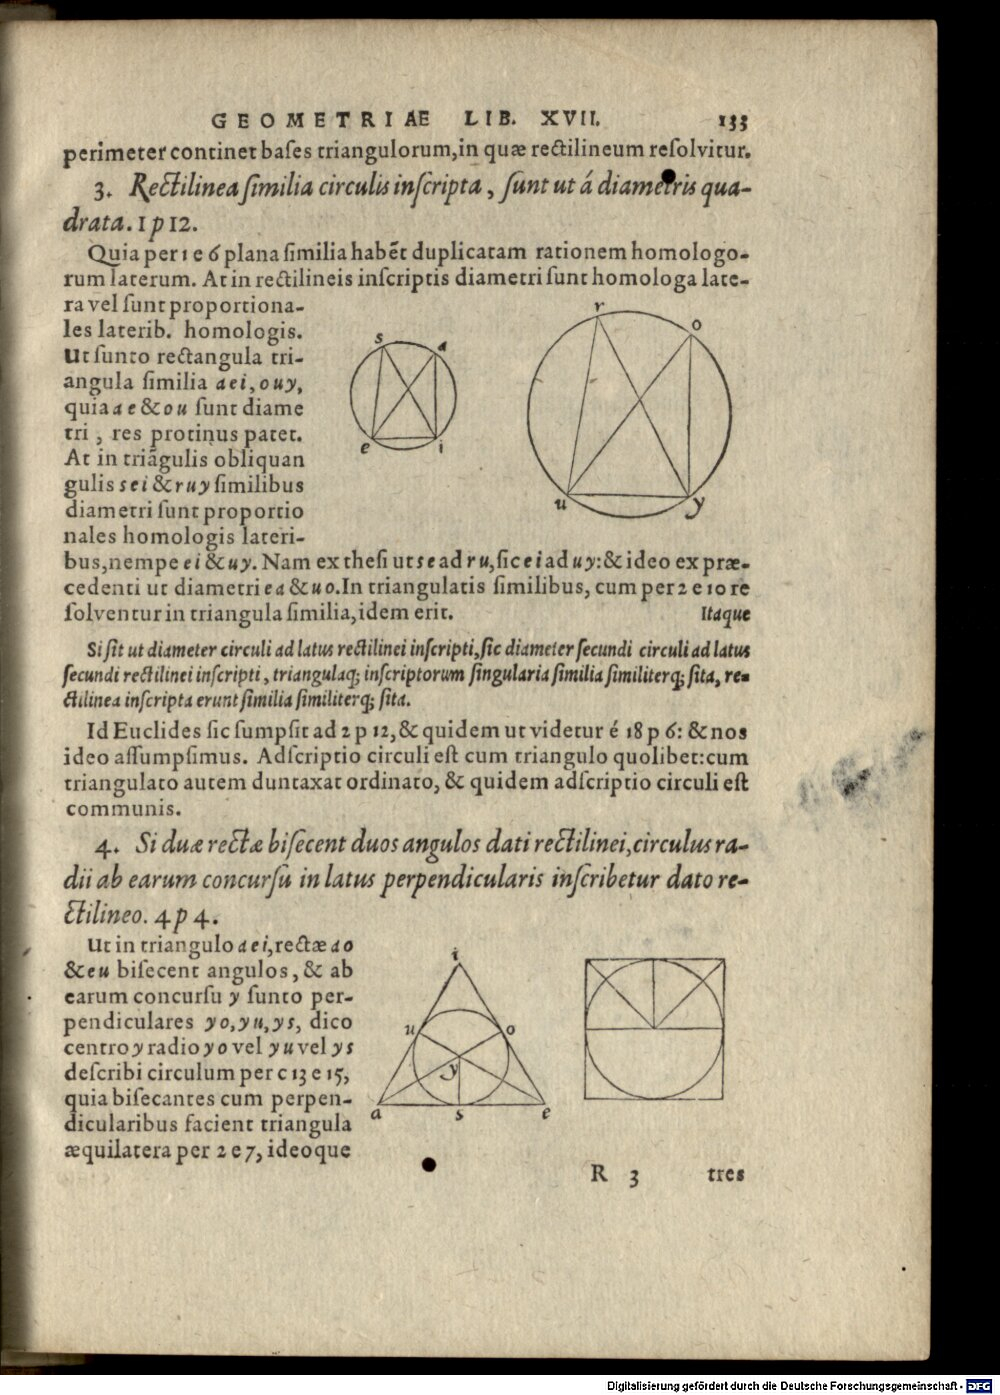 GEOMETRIAE LIB. XVII. 133
perimeter continet bases triangulorum, in quæ rectilineum resolvitur.
3. Rectilinea similia circulis inscripta, sunt ut á diametris qua-
drata. 1 p 12.
Quia per 1 e 6 plana similia habẽt duplicatam rationem homologo-
rum laterum. At in rectilineis inscriptis diametri sunt homologa late-
ra vel sunt proportiona-
les laterib. homologis.
Ut sunto rectangula tri-
angula similia aei, ouy,
quia ae & ou sunt diame
tri, res protinus patet.
At in triãgulis obliquan
gulis sei & ruy similibus
diametri sunt proportio
nales homologis lateri-
bus, nempe ei & uy. Nam ex thesi ut se ad ru, sic ei ad uy: & ideo ex præ-
cedenti ut diametri ea & uo. In triangulatis similibus, cum per 2 e 10 re
solventur in triangula similia, idem erit. Itaque
Si sit ut diameter circuli ad latus rectilinei inscripti, sic diameter secundi circuli ad latus
secundi rectilinei inscripti, triangulaq; inscriptorum singularia similia similiterq; sita, re-
ctilinea inscripta erunt similia similiterq; sita.
Id Euclides sic sumpsit ad 2 p 12, & quidem ut videtur é 18 p 6: & nos
ideo assumpsimus. Adscriptio circuli est cum triangulo quolibet: cum
triangulato autem duntaxat ordinato, & quidem adscriptio circuli est
communis.
4. Si duæ rectæ bisecent duos angulos dati rectilinei, circulus ra-
dii ab earum concursu in latus perpendicularis inscribetur dato re-
ctilineo. 4 p 4.
Ut in triangulo aei, rectæ ao
& eu bisecent angulos, & ab
earum concursu y sunto per-
pendiculares yo, yu, ys, dico
centro y radio yo vel yu vel ys
describi circulum per c 13 e 15,
quia bisecantes cum perpen-
dicularibus facient triangula
æquilatera per 2 e 7, ideoque
s a e i
r o u y
i u o y a s e
R 3 tres
Digitalisierung gefördert durch die Deutsche Forschungsgemeinschaft - DFG